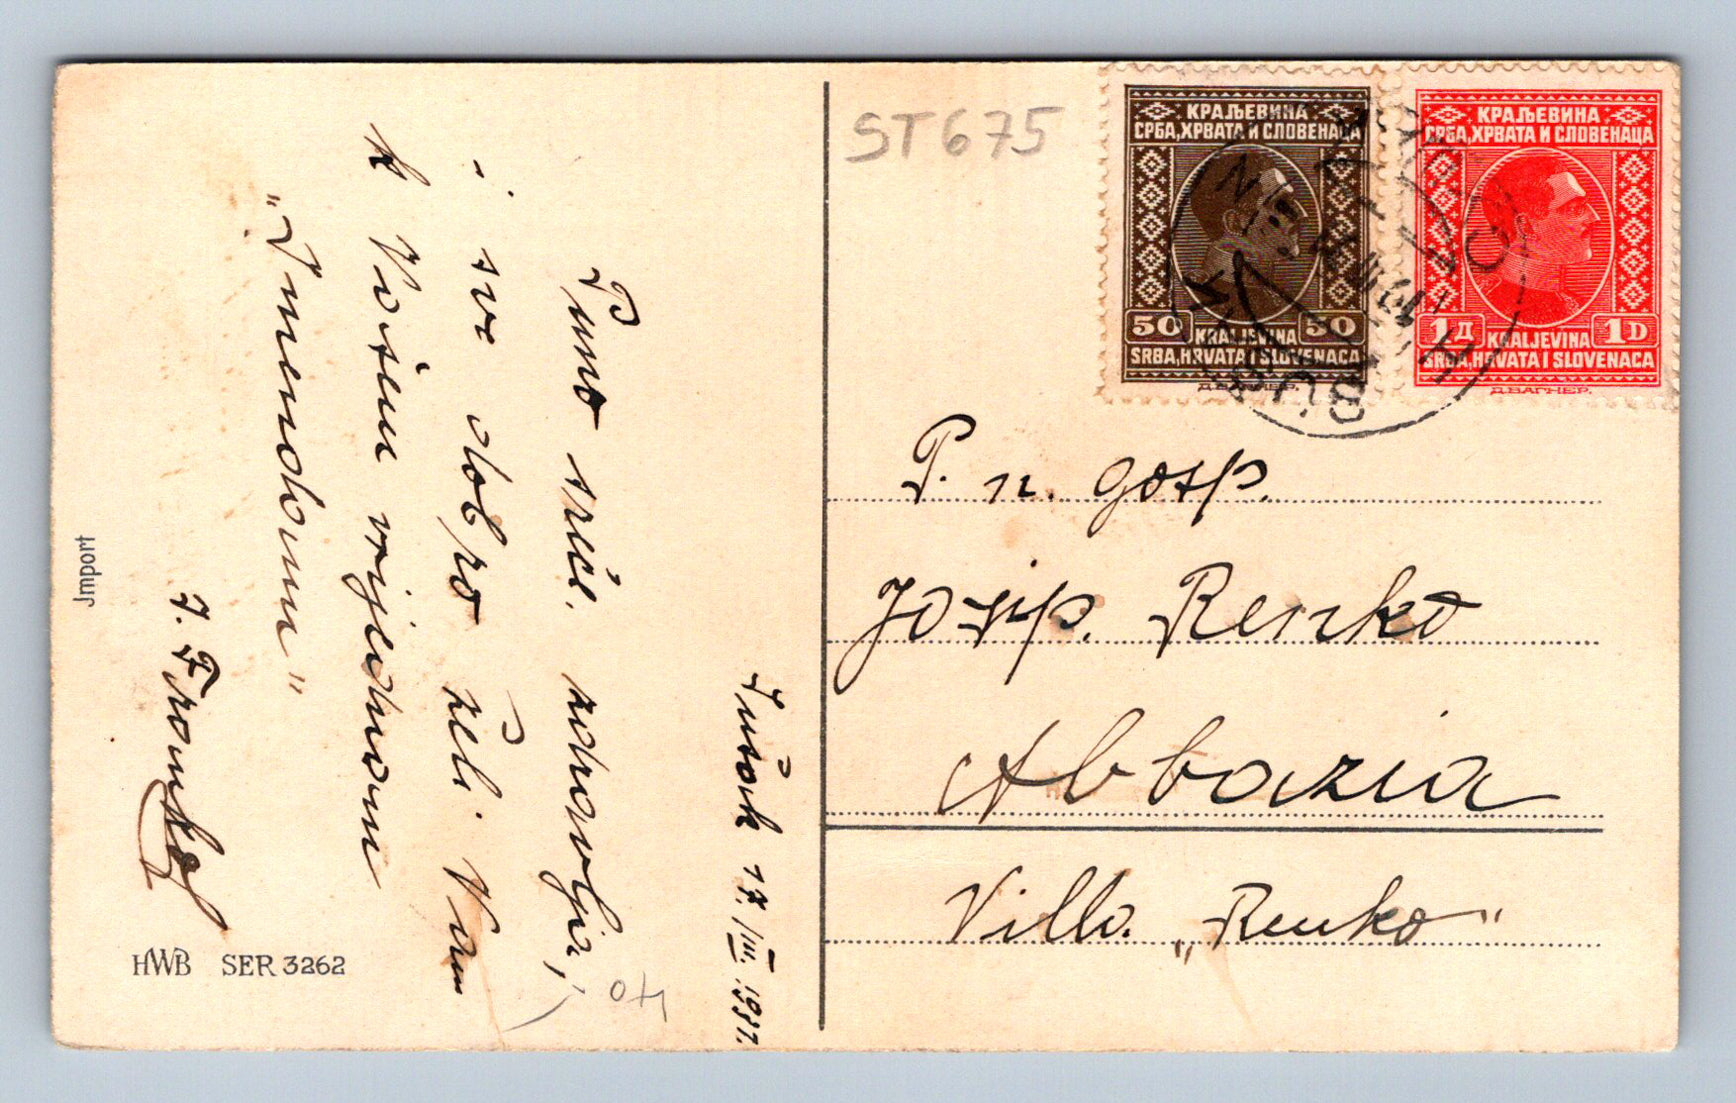 ST675
КРАЉЕВИНА
СРБА, ХРВАТА И СЛОВЕНАЦА
50 50
KRALJEVINA
SRBA, HRVATA I SLOVENACA
Д.ВАГНЕР.
КРАЉЕВИНА
СРБА, ХРВАТА И СЛОВЕНАЦА
1Д 1D
KRALJEVINA
SRBA, HRVATA I SLOVENACA
Д.ВАГНЕР.
SUŠAK
P. n. gosp.
Josip. Renko
Abbazia
Villa. „Renko"
Sušak 17./III. 1931.
Puno sreće. zdravlja,
i sve dobro želi Vam
k Vašem vrijednom
"Imendanu"
Jmport
HWB SER 3262